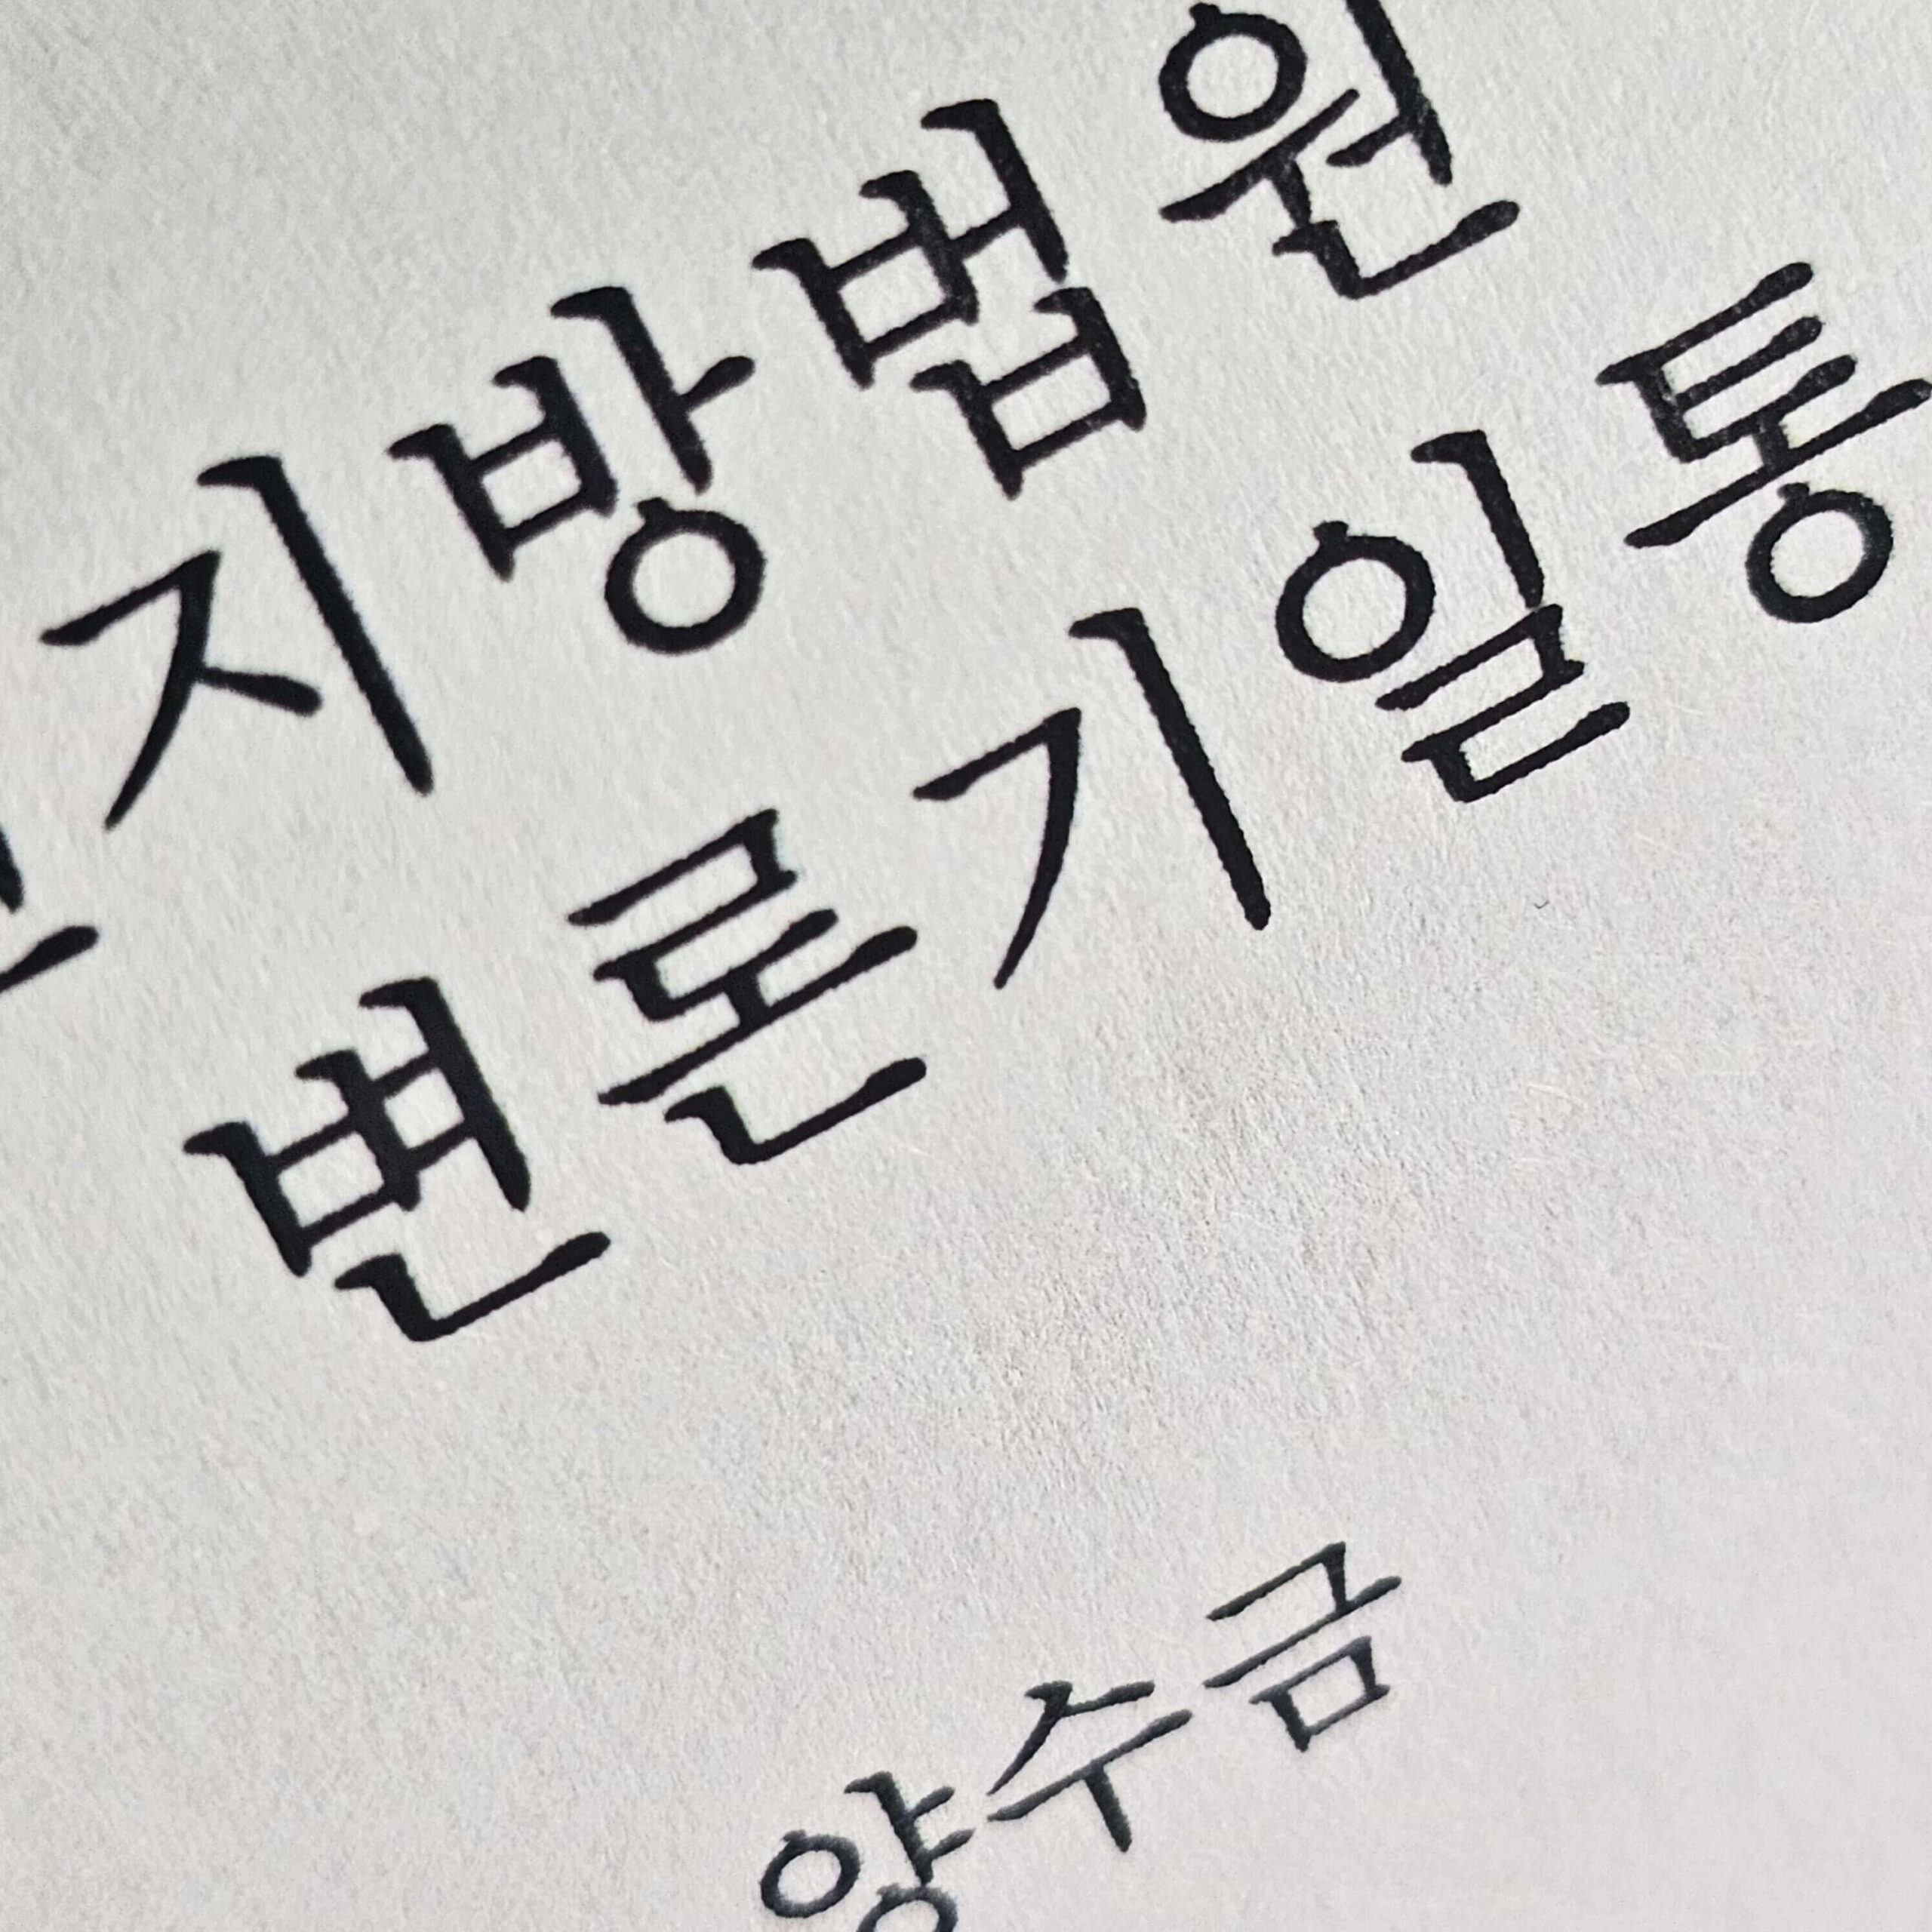 지방법원
변론기일통
양수금